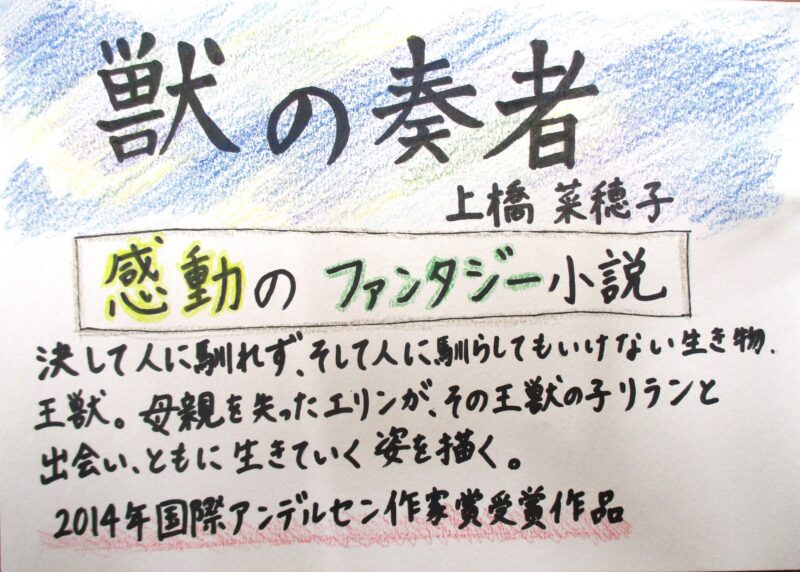 獣の奏者
上橋 菜穂子
感動のファンタジー小説
決して人に馴れず、そして人に馴らしてもいけない生き物、
王獣。母親を失ったエリンが、その王獣の子リランと
出会い、ともに生きていく姿を描く。
2014年国際アンデルセン作家賞受賞作品